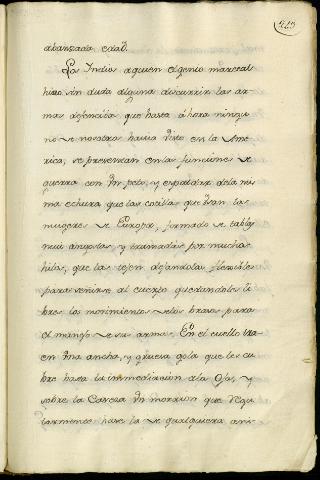 abanzada edad.
Los Yndios aquien elgenio marcial
hizo sin duda alguna discurrir las ar-
mas defencibas que hasta áhora ningu
no de nosotros havia visto en la Ame
rica, se presentan en las funciones de
guerra con Un peto, y espaldar dela mis
ma echura que las cotillas que Usan las
mugeres de Europa, formado de tablas
mui angostas, y tramadas por muchos
hilos, que las tejen dejandolas flexibles
para ceñirse al cuerpo quedandoles li
bres los movimientos delos brasos para
el manejo de su arma. En el cuello tra
en Una ancha, y grueza gola que les cu
bre hasta la immediacion alos Ojos, y
sobre la Caveza Un morrion que regu
larmente hace la de qualquiera ani-